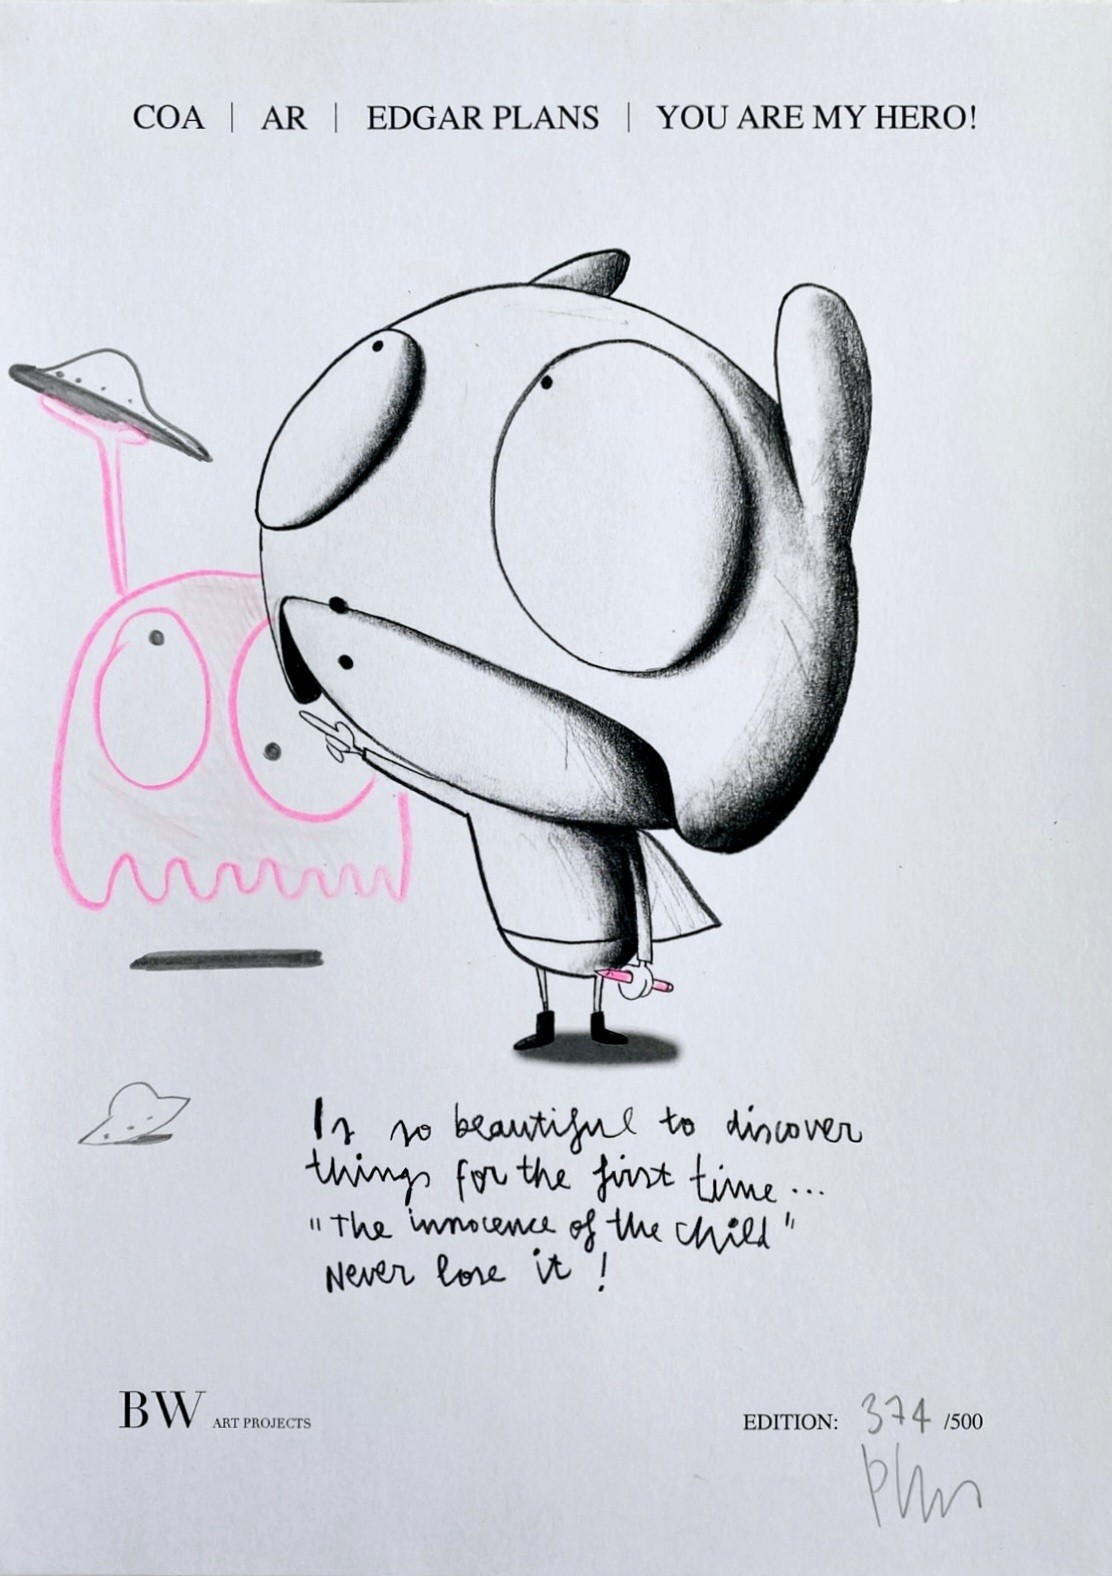 COA | AR | EDGAR PLANS | YOU ARE MY HERO!
Is so beautiful to discover
things for the first time...
"The innocence of the child"
Never lose it !
BW ART PROJECTS
EDITION: 374 /500
Plans